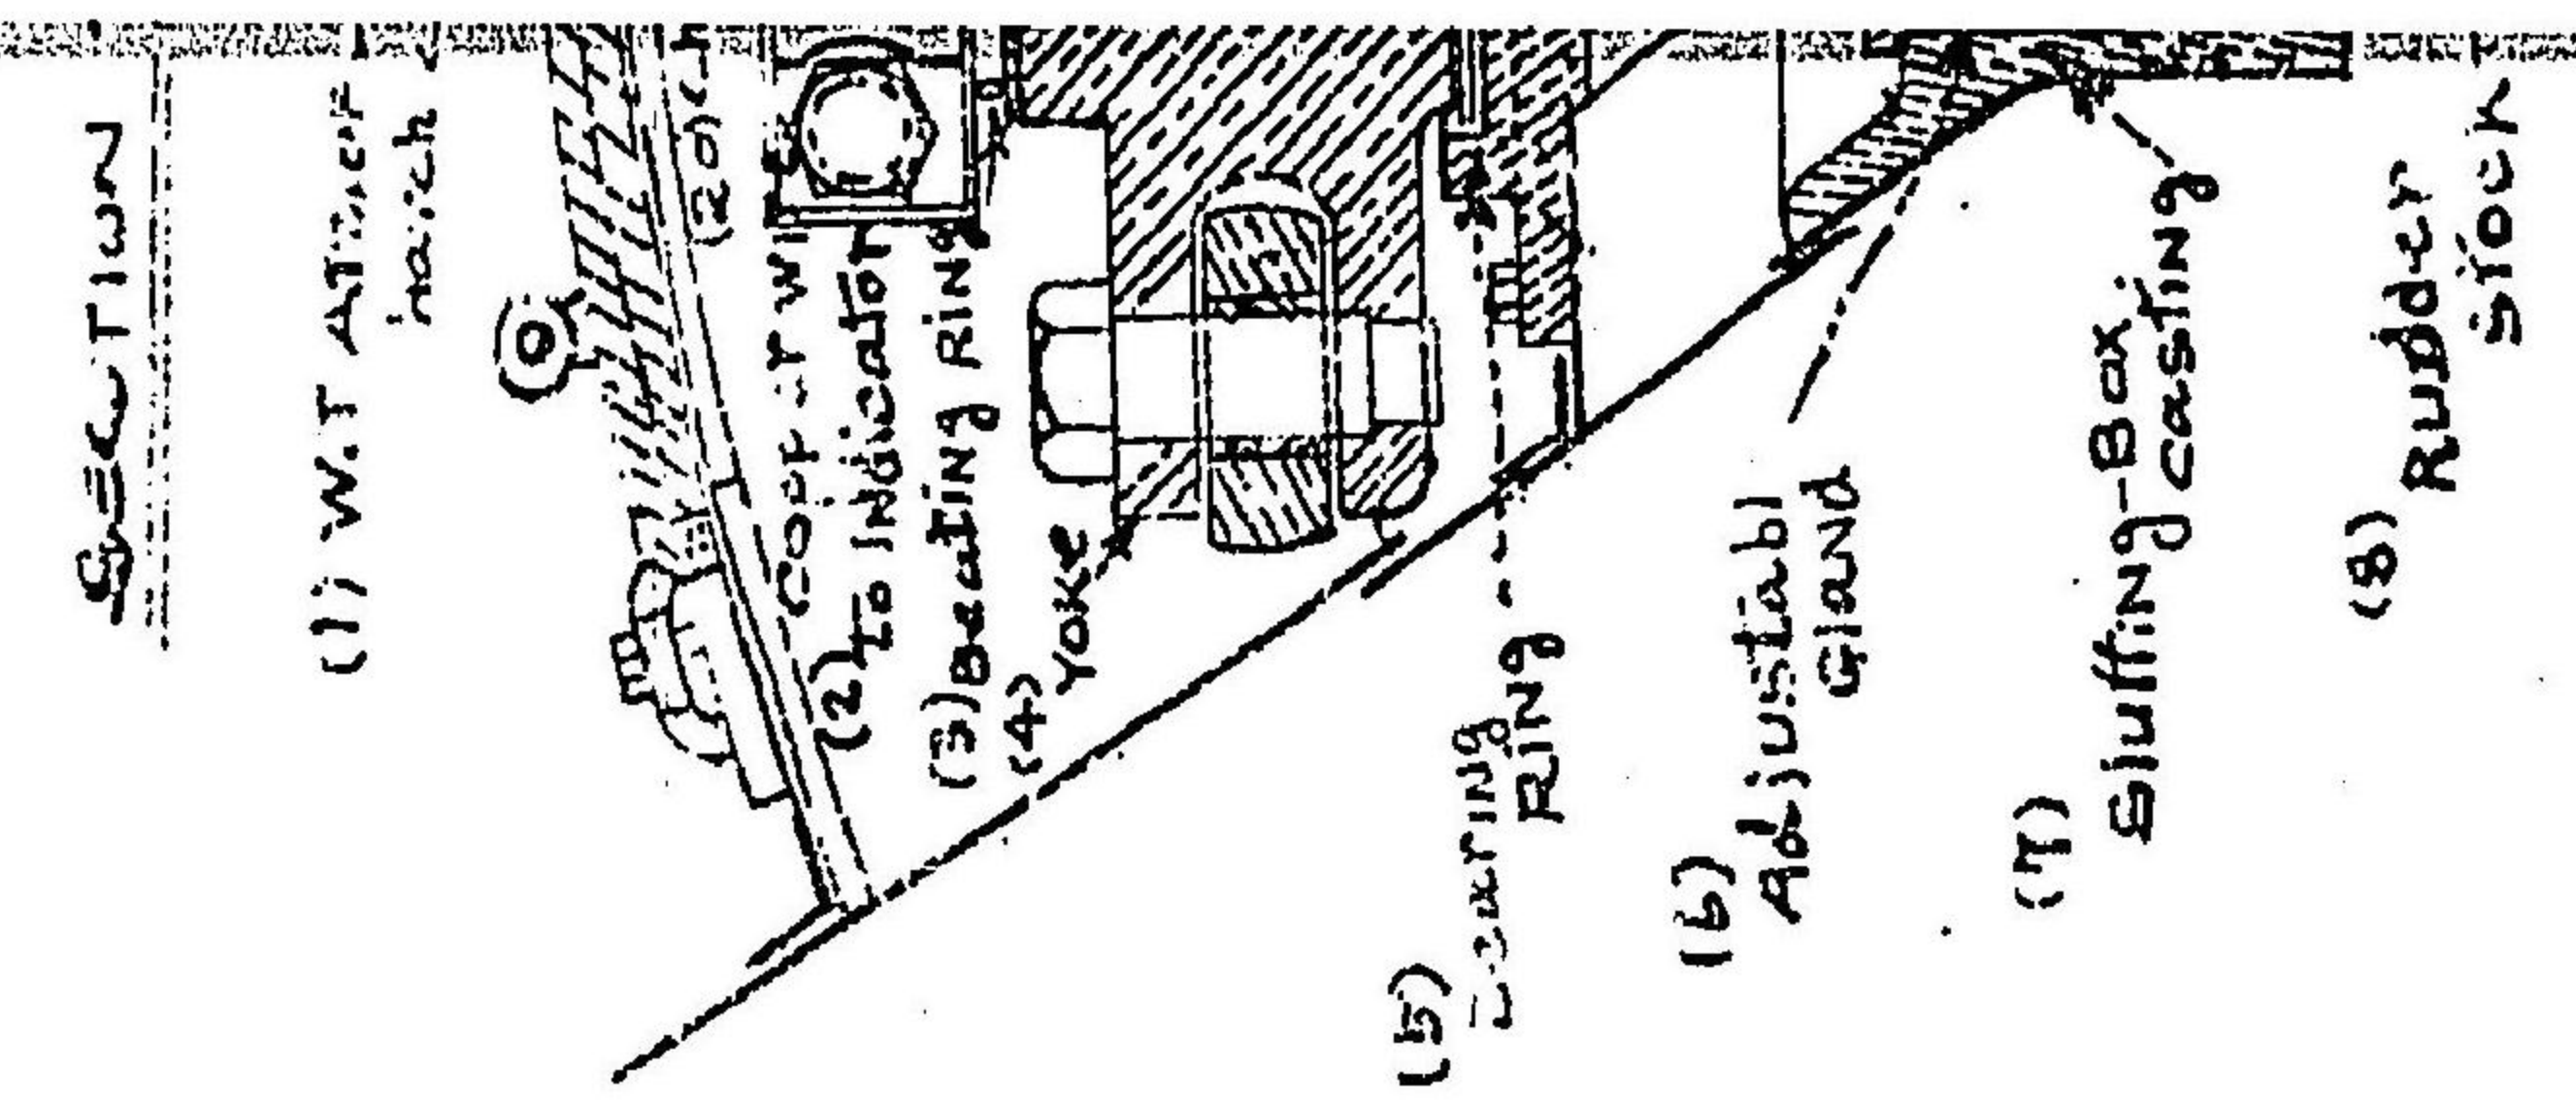 SECTION
(1) W.T
hatch
(20)
(2)
To Indicator
(3) Bearing Ring
(4)
Yoke
(5)
Bearing
Ring
(6)
Adjustabl
Gland
(7)
Stuffing-Box
casting
(8)
Rudder
Stock